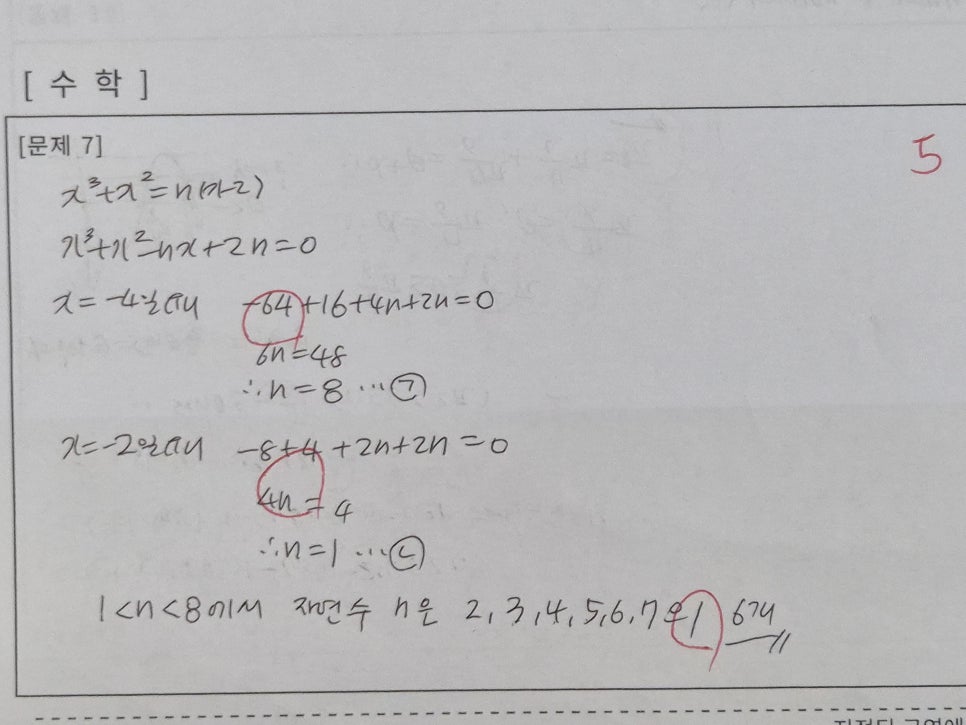 [ 수 학 ]
[문제 7]
5
x³+x²=n(x-2)
x³+x²-nx+2n=0
x=-4일때 -64+16+4n+2n=0
6n=48
∴n=8 … ㉠
x=-2일때 -8+4+2n+2n=0
4n=4
∴n=1 … ㉡
1<n<8에서 자연수 n은 2, 3, 4, 5, 6, 7로 6개